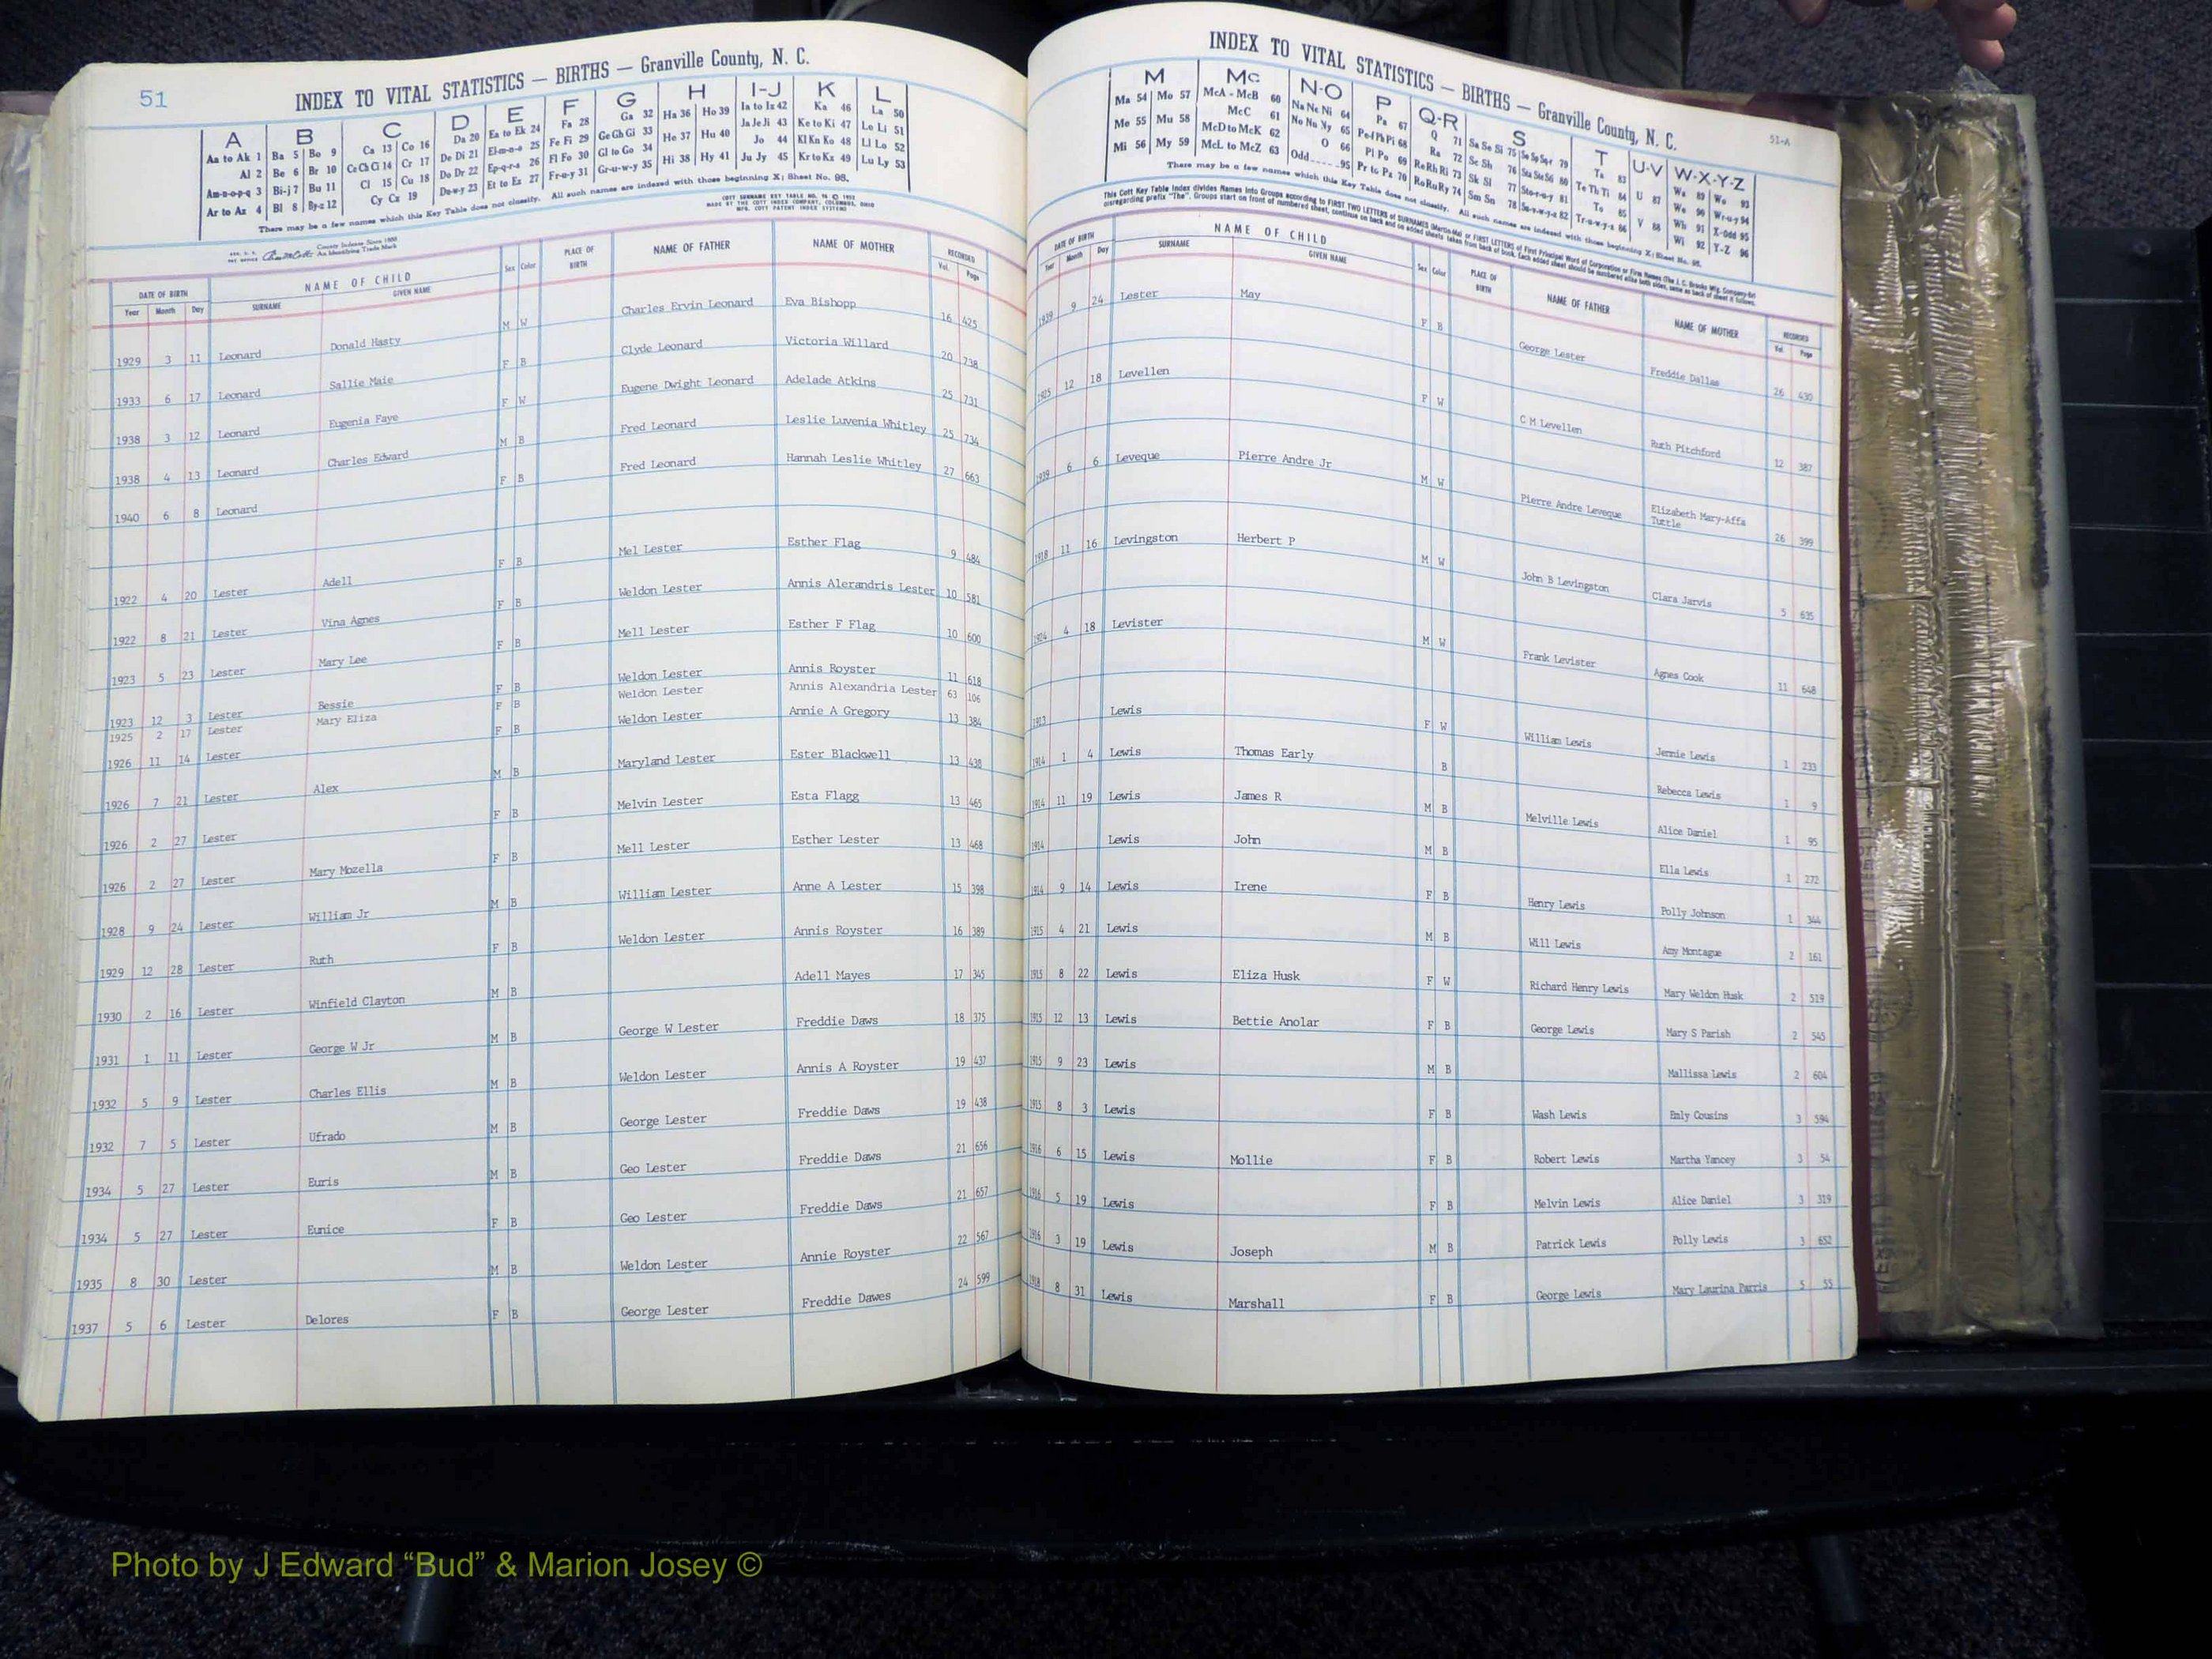 51
INDEX TO VITAL STATISTICS — BIRTHS — Granville County, N. C.
A B C D E F G H I-J K L
Aa to Ak 1 Ba 5 Bo 9 Ca 13 Co 16 Da 20 Ea to Ek 24 Fa 28 Ga 32 Ha 36 Ho 39 Ia to Iz 42 Ka 46 La 50
Al 2 Be 6 Br 10 Ce Ch Ci 14 Cr 17 De Di 21 El-m-n-o 25 Fe Fi 29 Ge Gh Gi 33 He 37 Hu 40 Ja Je Ji 43 Ke to Ki 47 Le Li 51
Am-n-o-p-q 3 Bi-j 7 Bu 11 Cl 15 Cu 18 Do Dr 22 Ep-q-r-s 26 Fl Fo 30 Gl to Go 34 Hi 38 Hy 41 Jo 44 Kl Kn Ko 48 Ll Lo 52
Ar to Az 4 Bl 8 By-z 12 Cy Cz 19 Du-w-y 23 Et to Ez 27 Fr-u-y 31 Gr-u-w-y 35 Ju Jy 45 Kr to Kz 49 Lu Ly 53
There may be a few names which this Key Table does not classify. All such names are indexed with those beginning X; Sheet No. 95.
DATE OF BIRTH NAME OF CHILD Sex Color PLACE OF BIRTH NAME OF FATHER NAME OF MOTHER RECORDED
Year Month Day SURNAME GIVEN NAME Vol. Page
1929 3 11 Leonard Donald Hasty M W Charles Ervin Leonard Eva Bishopp 16 425
1933 6 17 Leonard Sallie Maie F B Clyde Leonard Victoria Willard 20 738
1938 3 12 Leonard Eugenia Faye F W Eugene Dwight Leonard Adelade Atkins 25 731
1938 4 13 Leonard Charles Edward M B Fred Leonard Leslie Luvenia Whitley 25 734
1940 6 8 Leonard F B Fred Leonard Hannah Leslie Whitley 27 663
1922 4 20 Lester Adell F B Mel Lester Esther Flag 9 484
1922 8 21 Lester Vina Agnes F B Weldon Lester Annis Alerandris Lester 10 581
1923 5 23 Lester Mary Lee F B Mell Lester Esther F Flag 10 600
1923 12 3 Lester Bessie F B Weldon Lester Annis Royster 11 618
1925 2 17 Lester Mary Eliza F B Weldon Lester Annis Alexandria Lester 63 106
1926 11 14 Lester F B Weldon Lester Annie A Gregory 13 384
1926 7 21 Lester Alex M B Maryland Lester Ester Blackwell 13 438
1926 2 27 Lester F B Melvin Lester Esta Flagg 13 465
1926 2 27 Lester Mary Mozella F B Mell Lester Esther Lester 13 468
1928 9 24 Lester William Jr M B William Lester Anne A Lester 15 398
1929 12 28 Lester Ruth F B Weldon Lester Annis Royster 16 389
1930 2 16 Lester Winfield Clayton M B Adell Mayes 17 345
1931 1 11 Lester George W Jr M B George W Lester Freddie Daws 18 375
1932 5 9 Lester Charles Ellis M B Weldon Lester Annis A Royster 19 437
1932 7 5 Lester Ufrado M B George Lester Freddie Daws 19 438
1934 5 27 Lester Euris M B Geo Lester Freddie Daws 21 656
1934 5 27 Lester Eunice F B Geo Lester Freddie Daws 21 657
1935 8 30 Lester M B Weldon Lester Annie Royster 22 567
1937 5 6 Lester Delores F B George Lester Freddie Dawes 24 599
INDEX TO VITAL STATISTICS — BIRTHS — Granville County, N. C.
51-A
M Mc N-O P Q-R S T U-V W-X-Y-Z
Ma 54 Mo 57 McA - McB 60 Na Ne Ni 64 Pa 67 Q 71 Sa Se Si 75 79 Ta 83 U 87 Wa 89 Wo 93
Me 55 Mu 58 McC 61 No Nu Ny 65 Pe-f Ph Pi 68 Ra 72 Sc Sh 76 80 Te Th Ti 84 V 88 We 90 Wr-u-y 94
Mi 56 My 59 McD to McK 62 O 66 Pl Po 69 Re Rh Ri 73 Sk Sl 77 Sto-r-u-y 81 To 85 Wh 91 X-Odd 95
McL to McZ 63 Odd 95 Pr to Pz 70 Ro Ru Ry 74 Sm Sn 78 82 Tr-u-w-y-z 86 Wi 92 Y-Z 96
There may be a few names which this Key Table does not classify. All such names are indexed with those beginning X; Sheet No. 95.
DATE OF BIRTH NAME OF CHILD Sex Color PLACE OF BIRTH NAME OF FATHER NAME OF MOTHER RECORDED
Year Month Day SURNAME GIVEN NAME Vol. Page
1939 9 24 Lester May F B George Lester Freddie Dallas 26 430
1925 12 18 Levellen F W C M Levellen Ruth Pitchford 12 387
1939 6 6 Leveque Pierre Andre Jr M W Pierre Andre Leveque Elizabeth Mary-Affa Tuttle 26 399
1918 11 16 Levingston Herbert P M W John B Levingston Clara Jarvis 5 635
1924 4 18 Levister M W Frank Levister Agnes Cook 11 648
1913 Lewis F W William Lewis Jennie Lewis 1 233
1914 1 4 Lewis Thomas Early B Rebecca Lewis 1 9
1914 11 19 Lewis James R M B Melville Lewis Alice Daniel 1 95
1914 Lewis John M B Ella Lewis 1 272
1914 9 14 Lewis Irene F B Henry Lewis Polly Johnson 1 344
1915 4 21 Lewis M B Will Lewis Amy Montague 2 161
1915 8 22 Lewis Eliza Husk F W Richard Henry Lewis Mary Weldon Husk 2 519
1915 12 13 Lewis Bettie Anolar F B George Lewis Mary S Parish 2 545
1915 9 23 Lewis M B Mallissa Lewis 2 604
1915 8 3 Lewis F B Wash Lewis Emly Cousins 3 594
1916 6 15 Lewis Mollie F B Robert Lewis Martha Yancey 3 54
1916 5 19 Lewis F B Melvin Lewis Alice Daniel 3 319
1916 3 19 Lewis Joseph M B Patrick Lewis Polly Lewis 3 652
1918 8 31 Lewis Marshall F B George Lewis Mary Laurina Parris 5 55
Photo by J Edward “Bud” & Marion Josey ©